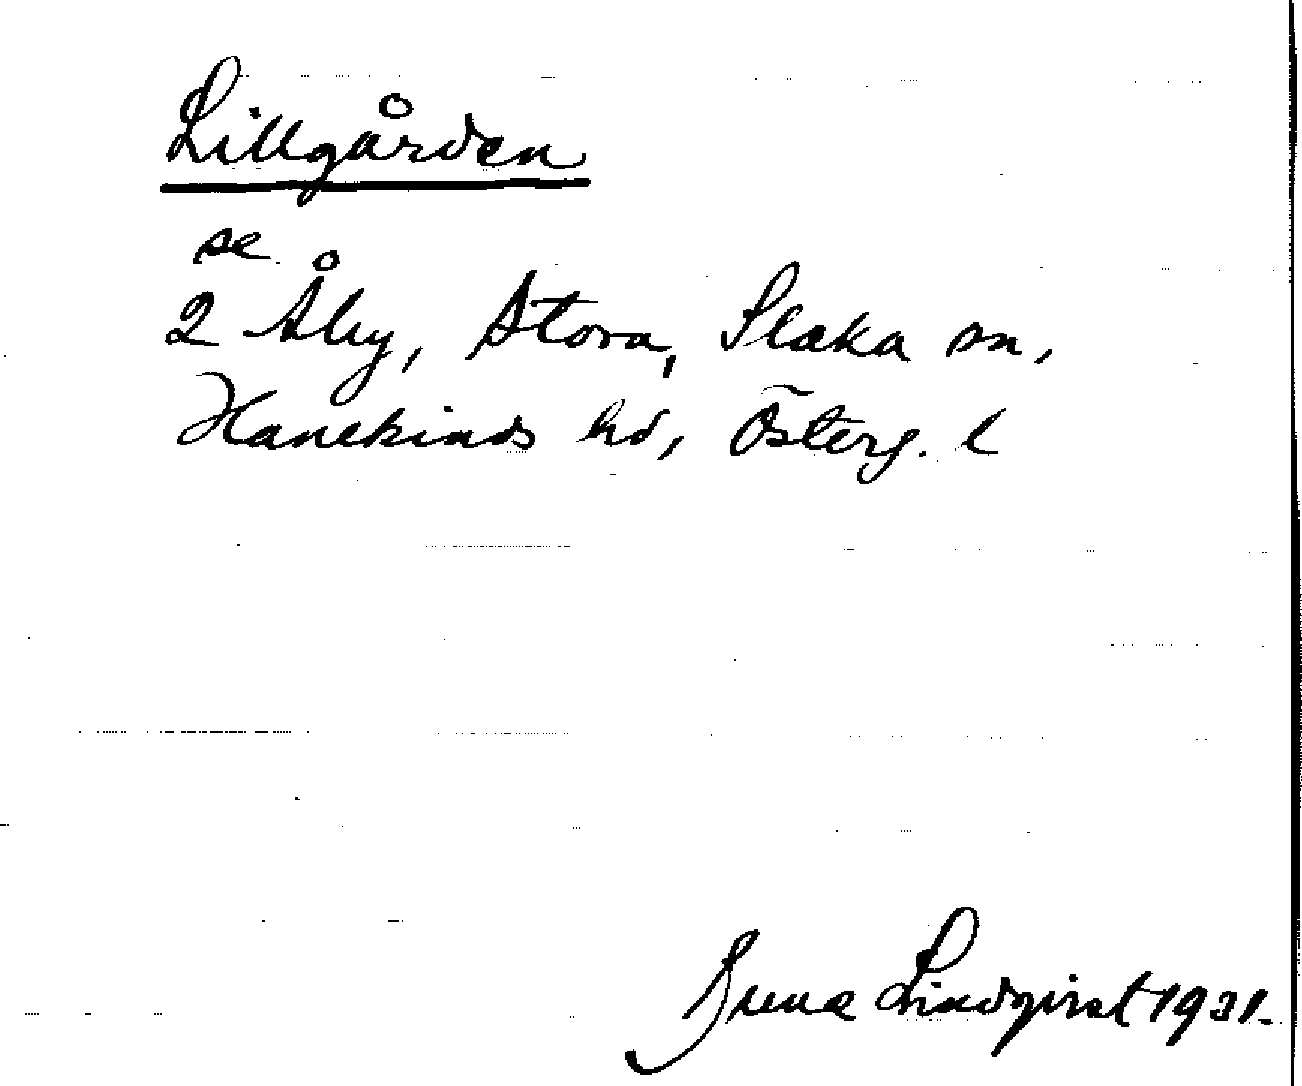 Lillgården
se
2 Åby, Stora, Slaka sn,
Hanekinds hd, Österg. l
Sune Lindqvist 1931.